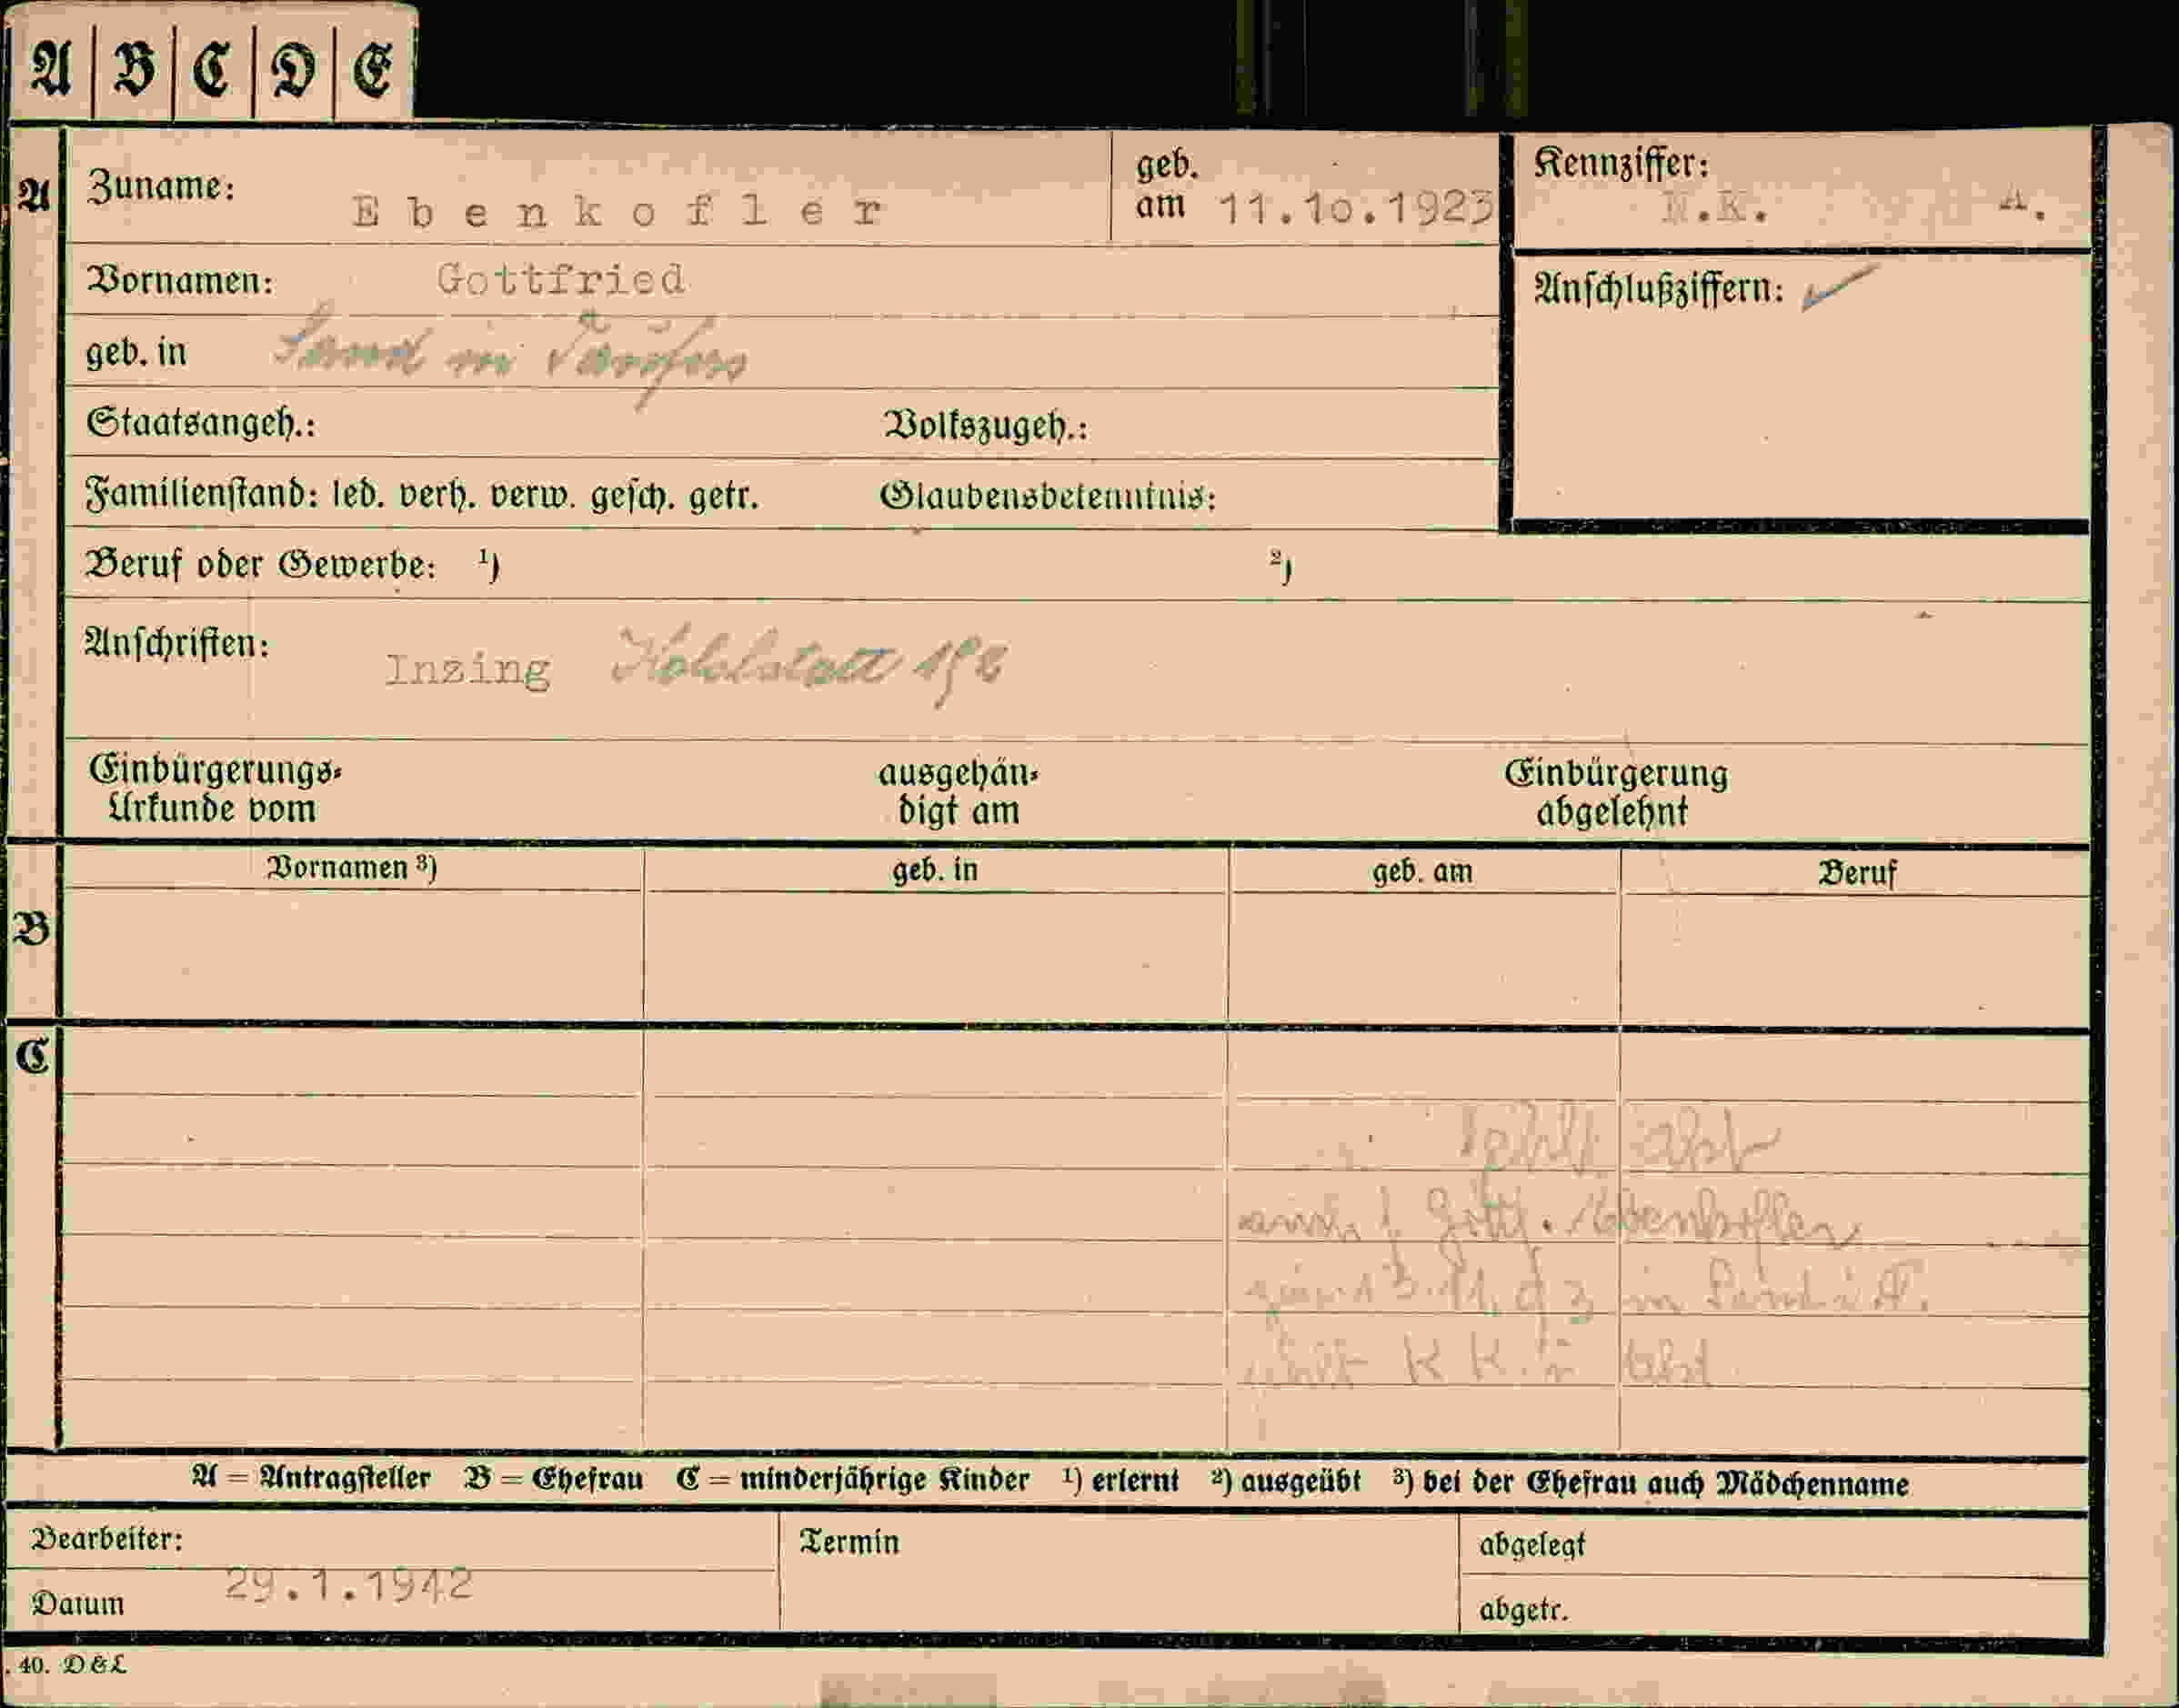 A B C D E
A Zuname: Ebenkofler geb. am 11.10.1923 Kennziffer: N.K. A.
Vornamen: Gottfried Anschlußziffern:
geb. in Sand in Taufers
Staatsangeh.: Volkszugeh.:
Familienstand: led. verh. verw. gesch. getr. Glaubensbekenntnis:
Beruf oder Gewerbe: ¹) ²)
Anschriften: Inzing Kohlstatt
Einbürgerungs- ausgehän- Einbürgerung
Urkunde vom digt am abgelehnt
Vornamen ³) geb. in geb. am Beruf
B
C
fehlt
Gottf. Ebenkofler
in Sand i. T.
K K
A = Antragsteller B = Ehefrau C = minderjährige Kinder ¹) erlernt ²) ausgeübt ³) bei der Ehefrau auch Mädchenname
Bearbeiter: Termin abgelegt
Datum 29.1.1942 abgetr.
. 40. D & L